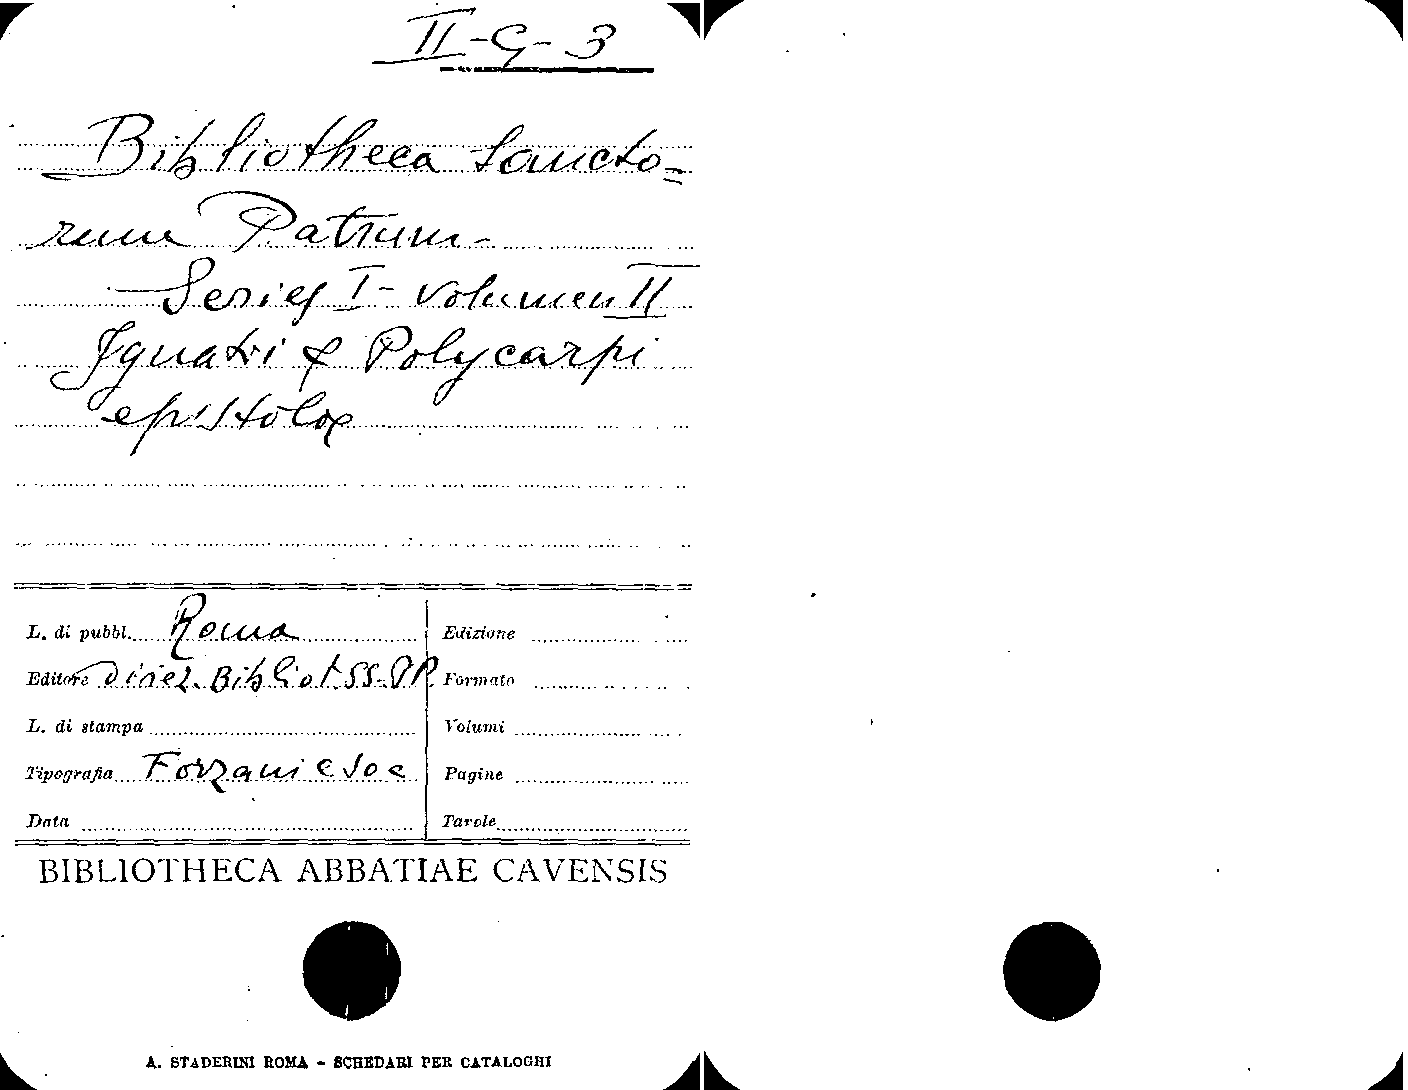 II-G-3
Bibliotheca Sancto=
rum Patrum-
- Series I - Volumen II
Ignatii & Polycarpi
epistolæ
L. di pubbl. Roma
Editore Direz. Bibliot. SS. PP.
L. di stampa
Tipografia Forzani e Soc
Data
Edizione
Formato
Volumi
Pagine
Tavole
BIBLIOTHECA ABBATIAE CAVENSIS
A. STADERINI ROMA - SCHEDARI PER CATALOGHI